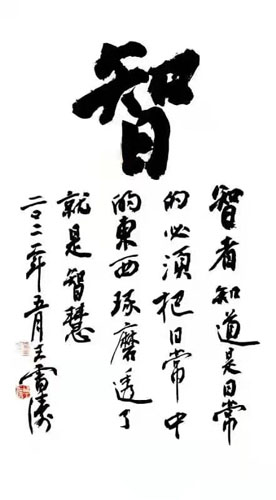 智
智者知道是日常
的必须把日常中
的东西琢磨透了
就是智慧
二〇二一年五月王雪涛